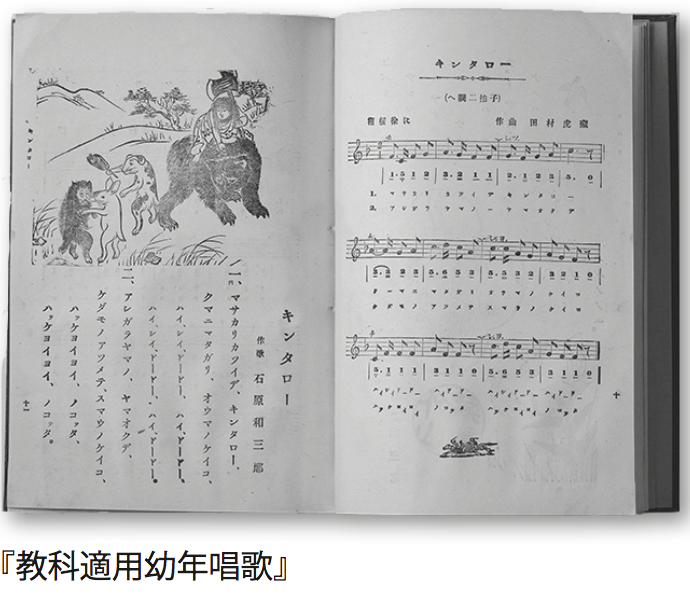 キンタロー
(ヘ調二拍子)
作曲 田村虎蔵
1. マサカリ カツイデ キンタロー
2. アシガラ ヤマノ ヤマオクデ
クーマニ マタガリ オウマノ ケイコ
ケダモノ アツメテ スマウノ ケイコ
十
キンタロー
作歌 石原和三郎
一、マサカリカツイデ、キンタロー、
クマニマタガリ、オウマノケイコ、
ハイ、シイ、ドードー、ハイ、ドードー、
ハイ、シイ、ドードー、ハイ、ドードー。
二、アシガラヤマノ、ヤマオクデ、
ケダモノアツメテ、スマウノケイコ、
ハッケヨイヨイ、ノコッタ、
ハッケヨイヨイ、ノコッタ。
キンタロー
十一
『教科適用幼年唱歌』